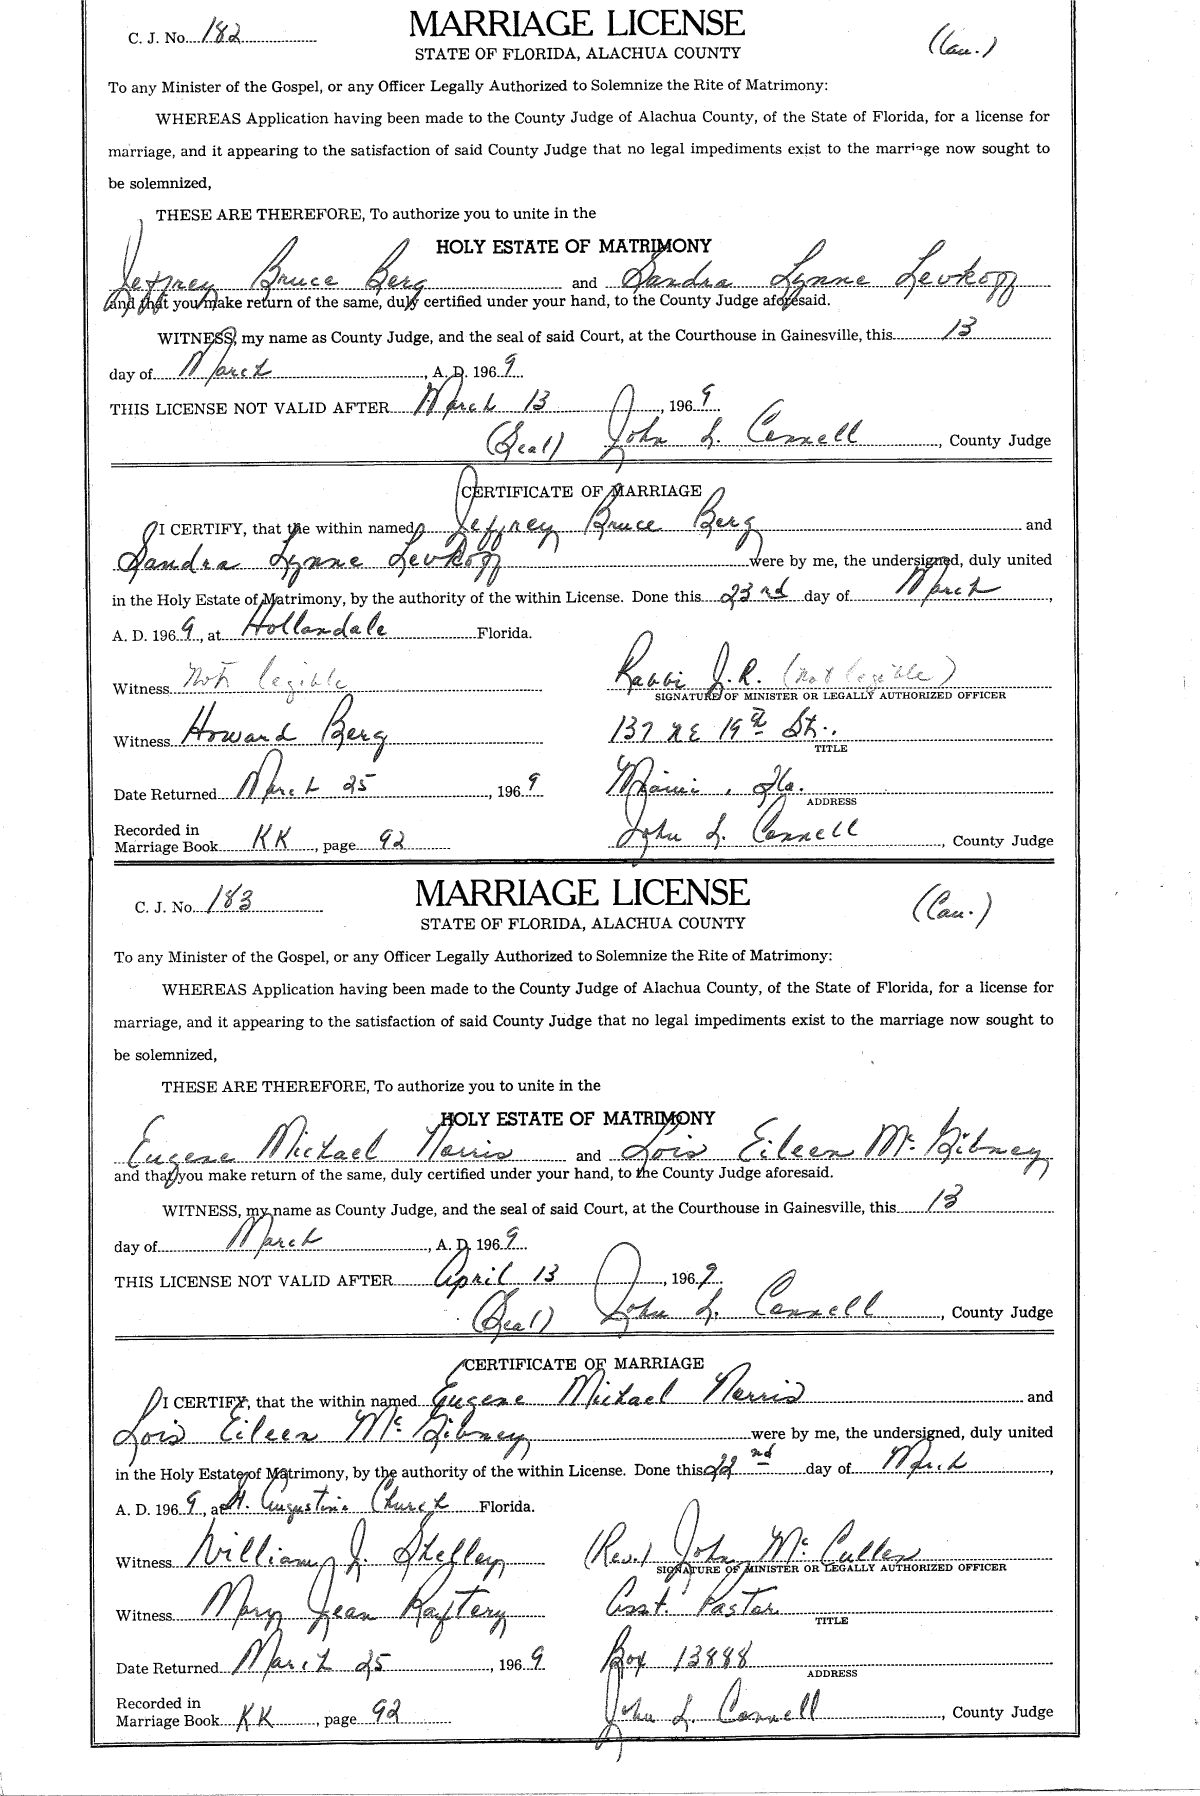 C. J. No. 182
MARRIAGE LICENSE
(Cau.)
STATE OF FLORIDA, ALACHUA COUNTY
To any Minister of the Gospel, or any Officer Legally Authorized to Solemnize the Rite of Matrimony:
WHEREAS Application having been made to the County Judge of Alachua County, of the State of Florida, for a license for
marriage, and it appearing to the satisfaction of said County Judge that no legal impediments exist to the marriage now sought to
be solemnized,
THESE ARE THEREFORE, To authorize you to unite in the
HOLY ESTATE OF MATRIMONY
Jeffrey Bruce Berg and Sandra Lynne Levkoff
and that you make return of the same, duly certified under your hand, to the County Judge aforesaid.
WITNESS, my name as County Judge, and the seal of said Court, at the Courthouse in Gainesville, this 13
day of March, A. D. 1969
THIS LICENSE NOT VALID AFTER March 13, 1969
(Seal) John L. Connell, County Judge
CERTIFICATE OF MARRIAGE
I CERTIFY, that the within named Jeffrey Bruce Berg and
Sandra Lynne Levkoff were by me, the undersigned, duly united
in the Holy Estate of Matrimony, by the authority of the within License. Done this 23rd day of March,
A. D. 1969, at Hollandale Florida.
Witness Not legible Rabbi J. R. (not legible)
SIGNATURE OF MINISTER OR LEGALLY AUTHORIZED OFFICER
Witness Howard Berg 137 NE 19th St.
TITLE
Date Returned March 25, 1969 Miami, Fla.
ADDRESS
Recorded in
Marriage Book KK, page 92 John L. Connell, County Judge
C. J. No. 183
MARRIAGE LICENSE
(Cau.)
STATE OF FLORIDA, ALACHUA COUNTY
To any Minister of the Gospel, or any Officer Legally Authorized to Solemnize the Rite of Matrimony:
WHEREAS Application having been made to the County Judge of Alachua County, of the State of Florida, for a license for
marriage, and it appearing to the satisfaction of said County Judge that no legal impediments exist to the marriage now sought to
be solemnized,
THESE ARE THEREFORE, To authorize you to unite in the
HOLY ESTATE OF MATRIMONY
Eugene Michael Norris and Lois Eileen McGibney
and that you make return of the same, duly certified under your hand, to the County Judge aforesaid.
WITNESS, my name as County Judge, and the seal of said Court, at the Courthouse in Gainesville, this 13
day of March, A. D. 1969
THIS LICENSE NOT VALID AFTER April 13, 1969
(Seal) John L. Connell, County Judge
CERTIFICATE OF MARRIAGE
I CERTIFY, that the within named Eugene Michael Norris and
Lois Eileen McGibney were by me, the undersigned, duly united
in the Holy Estate of Matrimony, by the authority of the within License. Done this 22nd day of March,
A. D. 1969, at St. Augustine Church Florida.
Witness William J. Shelley (Rev.) John McCullen
SIGNATURE OF MINISTER OR LEGALLY AUTHORIZED OFFICER
Witness Mary Jean Raftery Asst. Pastor
TITLE
Date Returned March 25, 1969 Box 13888
ADDRESS
Recorded in
Marriage Book KK, page 92 John L. Connell, County Judge